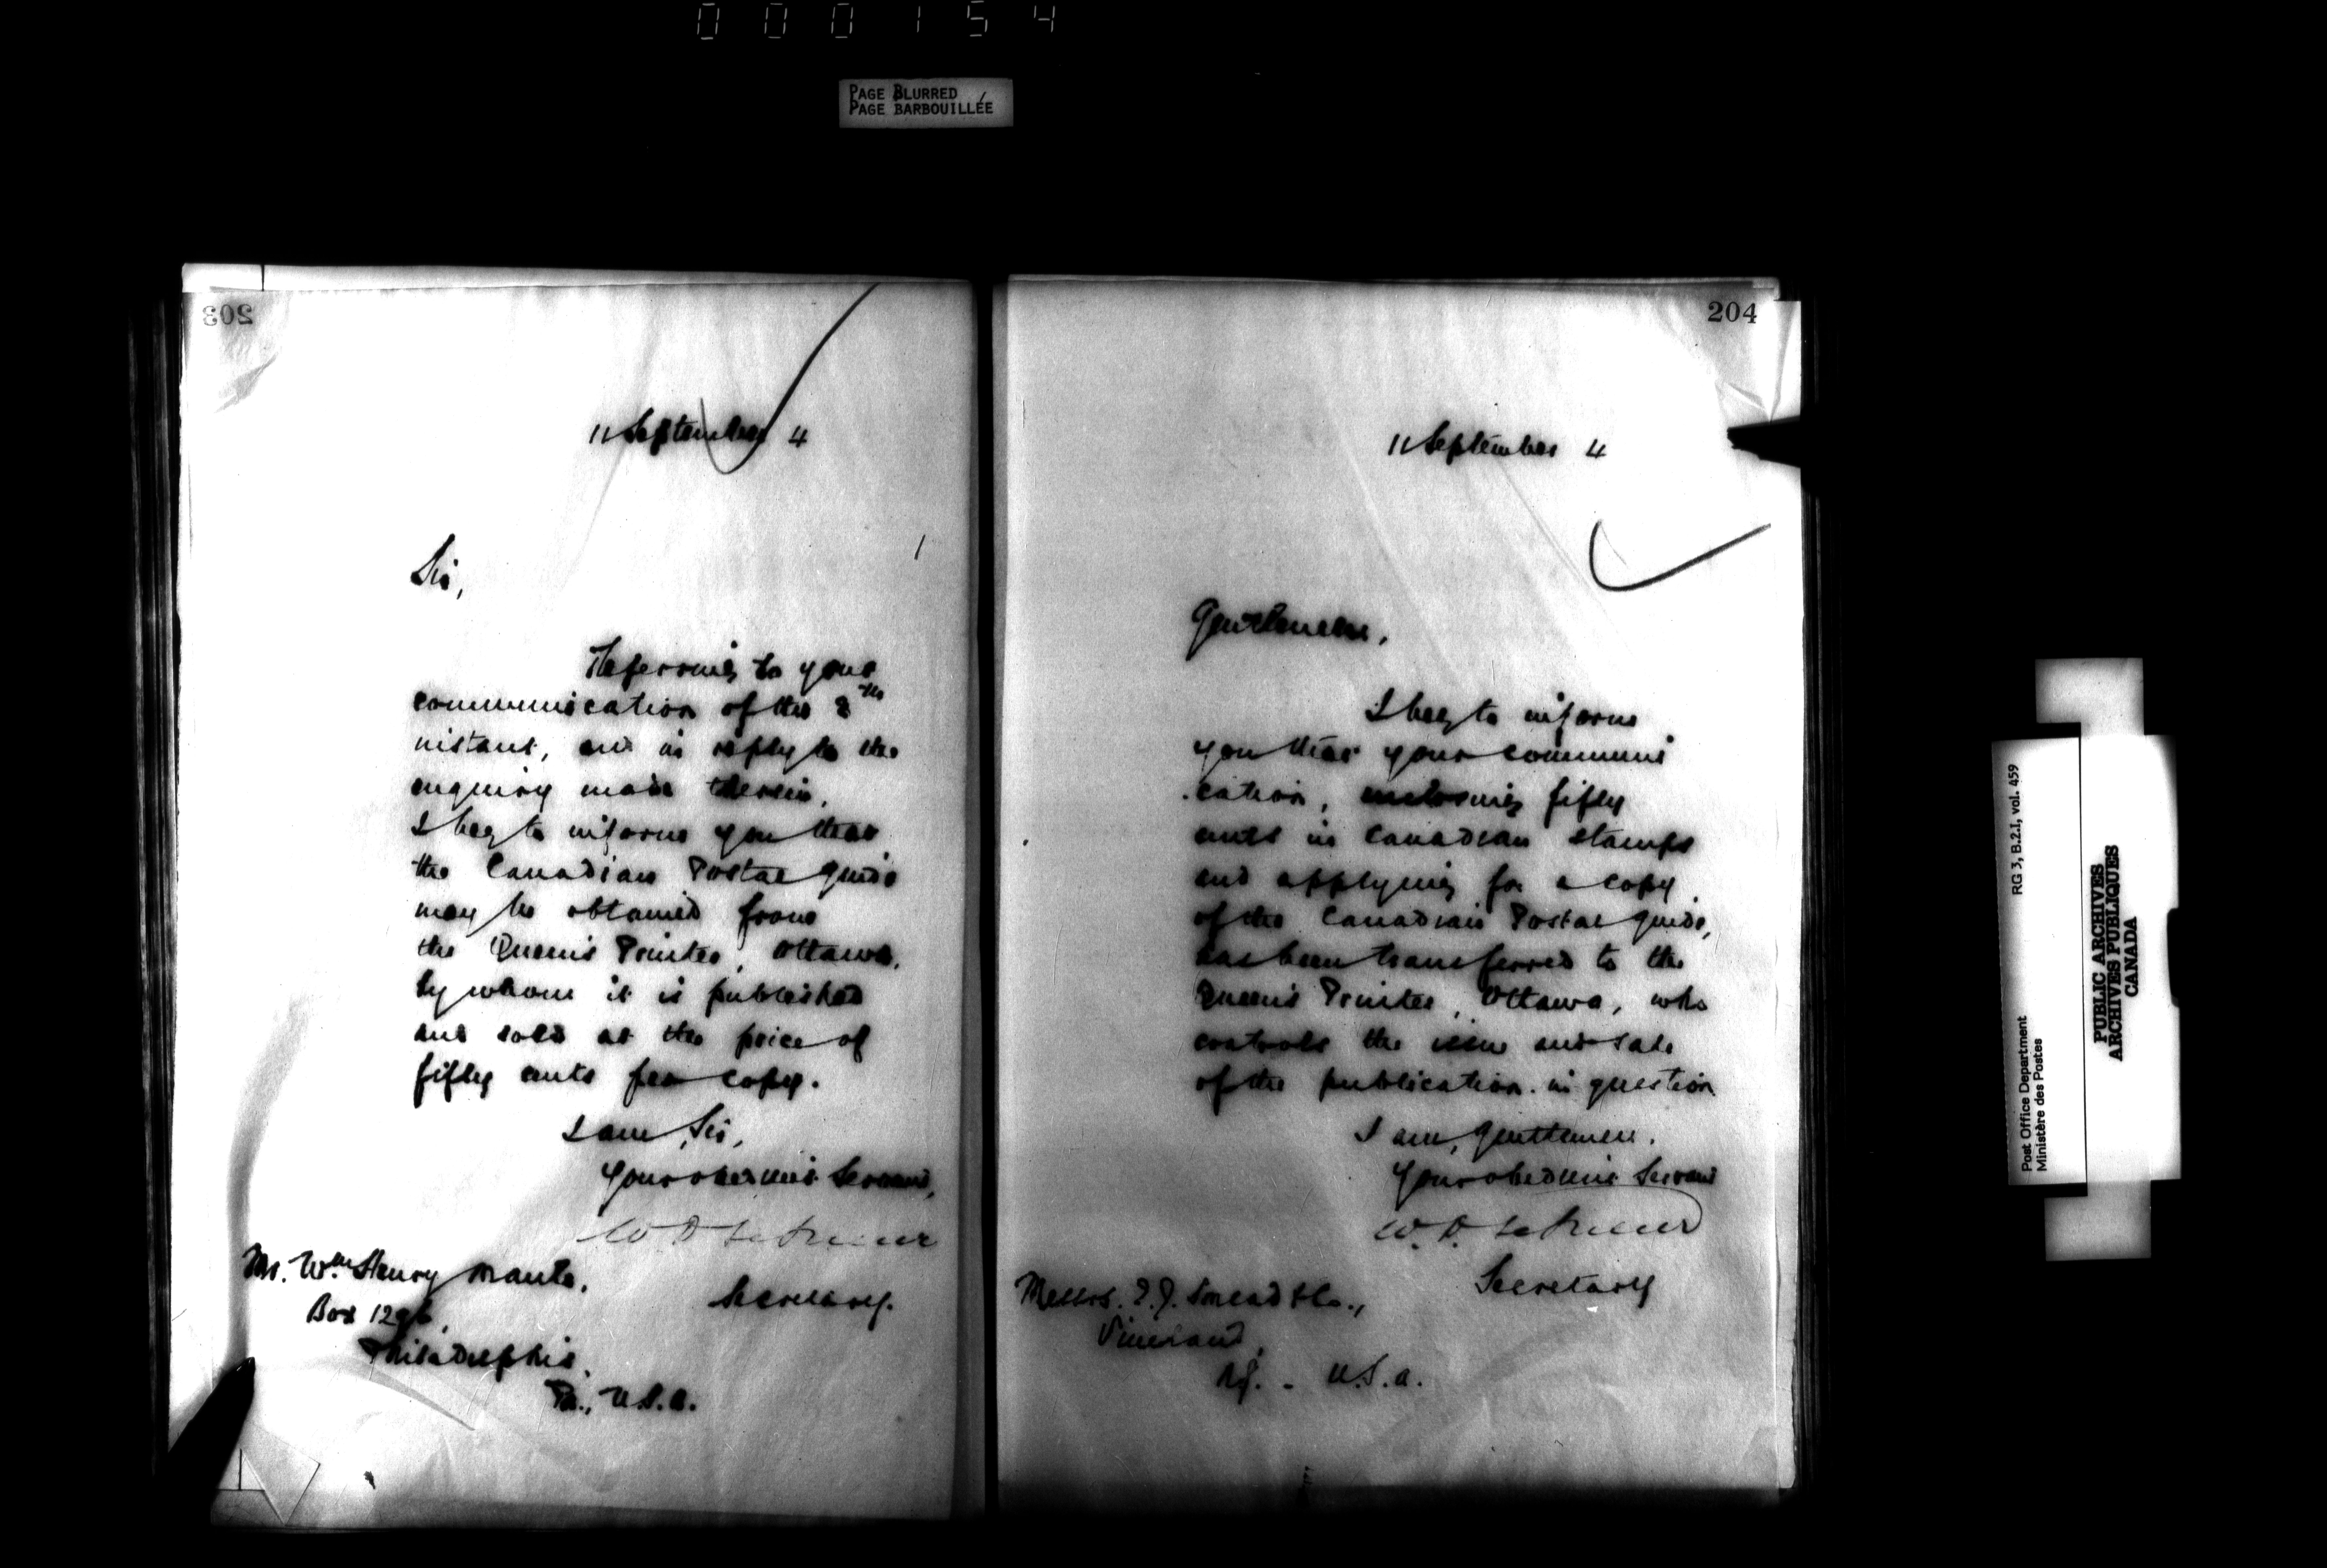 000154
PAGE BLURRED
PAGE BARBOUILLÉE
203
11 September 4
Sir,
Referring to your
communication of the 8th
instant, and in reply to the
enquiry made therein,
I beg to inform you that
the Canadian Postal Guide
may be obtained from
the Queen's Printer, Ottawa,
by whom it is published
and sold at the price of
fifty cents per copy.
I am, Sir,
Your obedient Servant,
W. D. LeSueur
Secretary.
Mr. Wm Henry
Box 1296,
Philadelphia,
Pa., U.S.A.
204
11 September 4
Gentlemen,
I beg to inform
you that your communi
cation, enclosing fifty
cents in Canadian stamps
and applying for a copy
of the Canadian Postal Guide,
has been transferred to the
Queen's Printer, Ottawa, who
controls the issue and sale
of the publication in question
I am, Gentlemen,
Your obedient Servant
W. D. LeSueur
Secretary
Messrs. Smead & Co.,
Vineland,
N.J. - U.S.A.
RG 3, B.2.I, vol. 459
Post Office Department
Ministère des Postes
PUBLIC ARCHIVES
ARCHIVES PUBLIQUES
CANADA